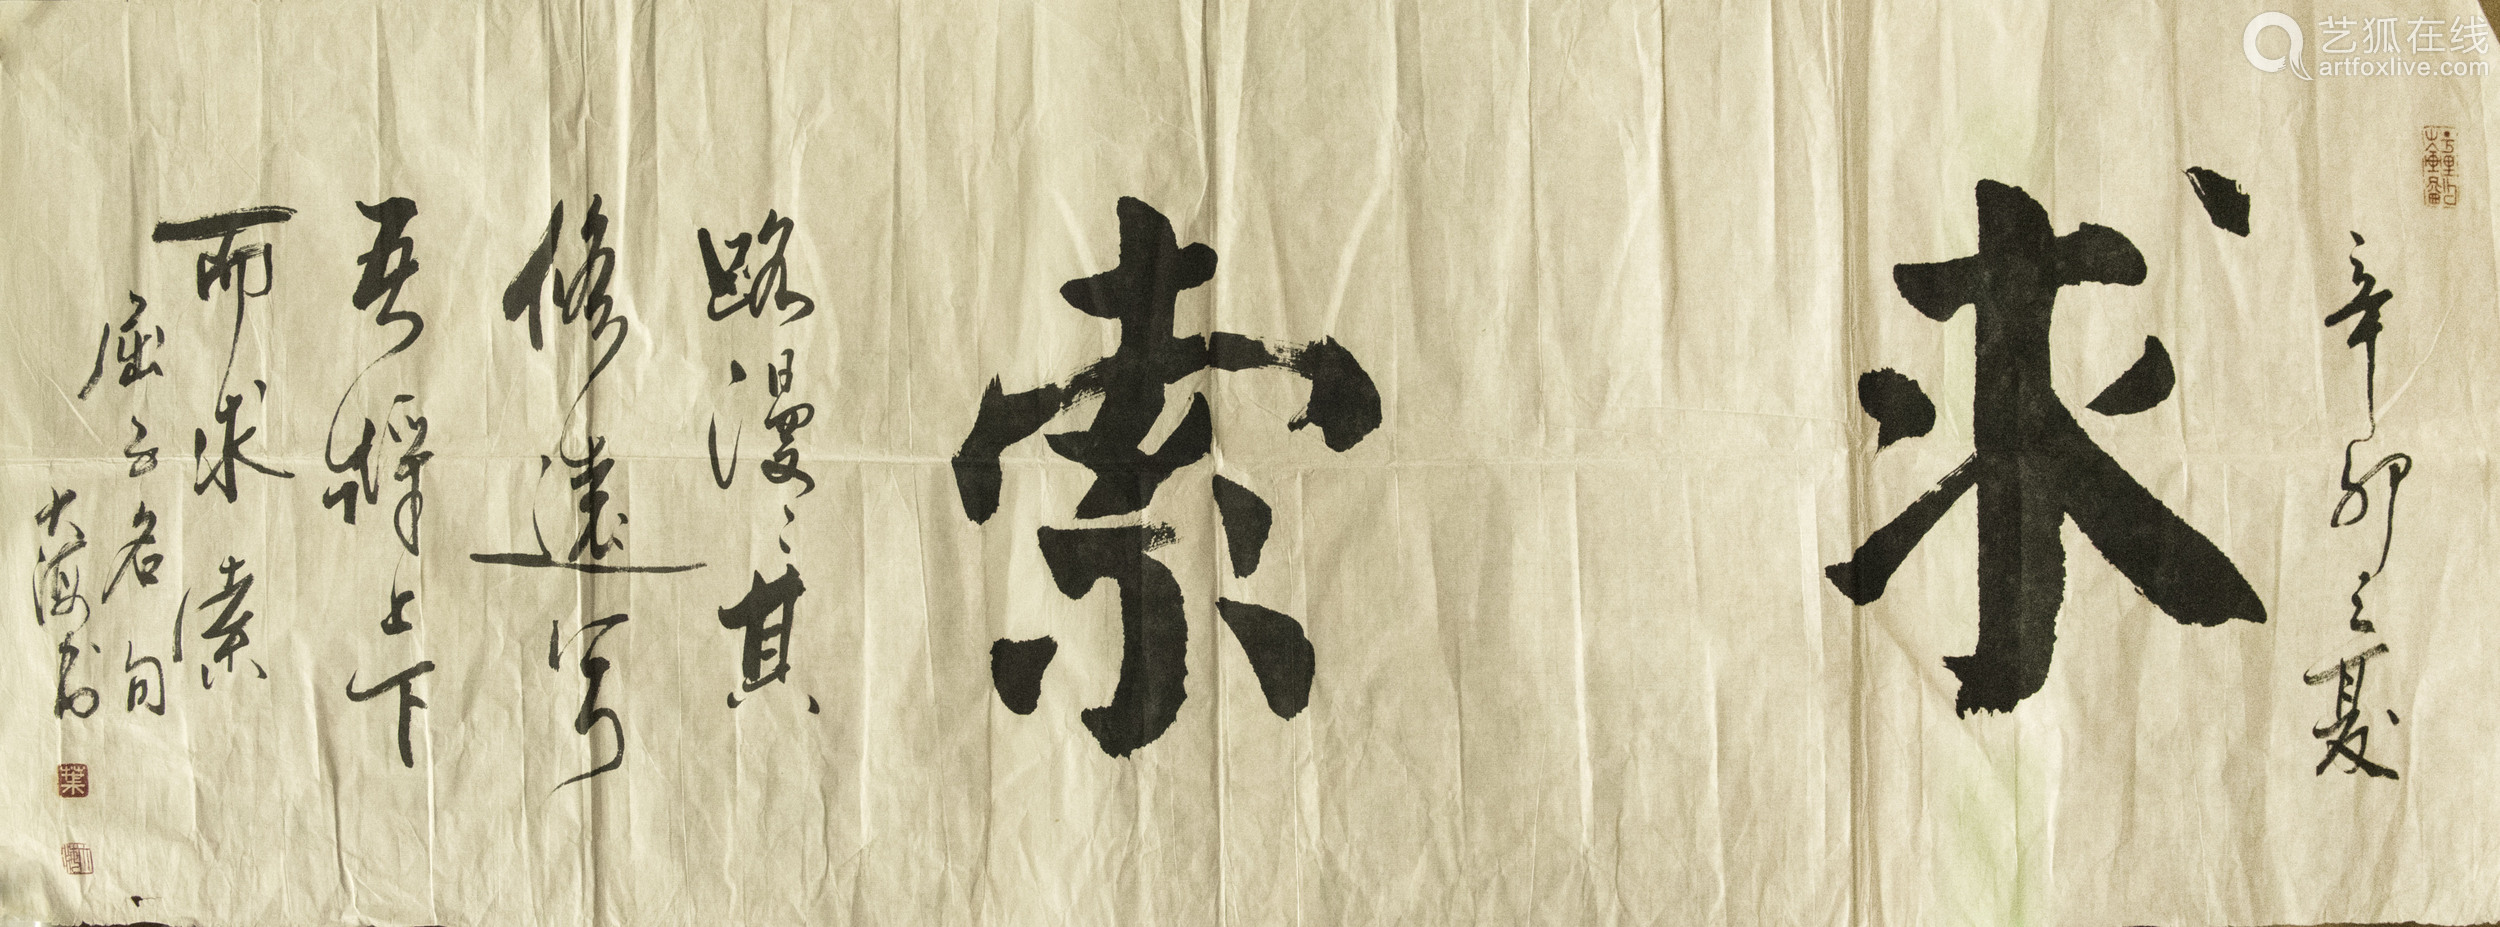 辛卯之夏
求索
路漫〻其
修遠兮
吾将上下
而求索
屈子名句
大海书
葉
艺狐在线
artfoxlive.com